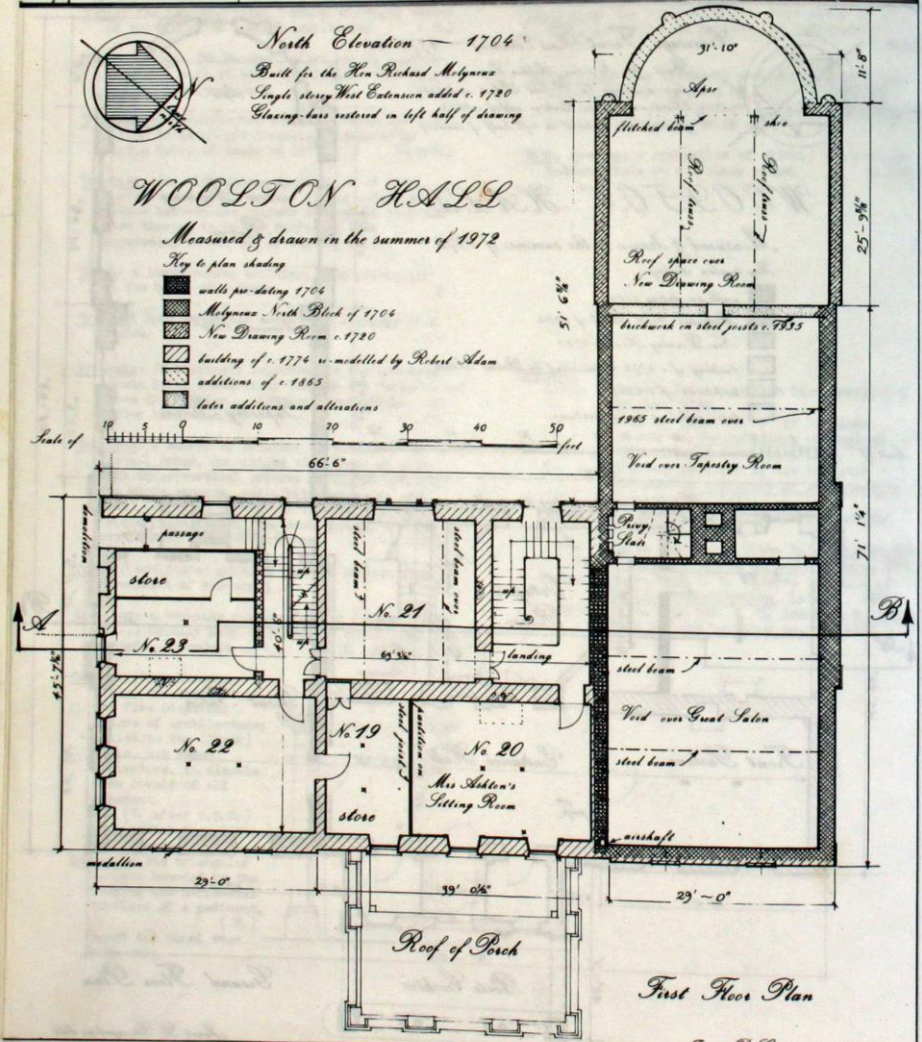 North Elevation — 1704
Built for the Hon Richard Molyneux
Single storey West Extension added c. 1720
Glazing-bars restored in left half of drawing
N
WOOLTON HALL
Measured & drawn in the summer of 1972
Key to plan shading
walls pre-dating 1704
Molyneux North Block of 1704
New Drawing Room c. 1720
building of c. 1774 re-modelled by Robert Adam
additions of c. 1865
later additions and alterations
Scale of 10 5 0 10 20 30 40 50 feet
31'-10"
11'-8"
Apse
flitched beam
shoe
Roof truss
Roof truss
25'-9⅝"
Roof space over
New Drawing Room
brickwork on steel joists c. 1935
1965 steel beam over
Void over Tapestry Room
66'-6"
demolition
passage
store
up
up
steel beam
steel beam over
No. 21
up
Privy
Stair
71' 1¼"
A
B
No. 23
landing
steel beam
Void over Great Salon
steel beam
No 22
No 19
store
steel joist
partition on
No. 20
Mrs Ashton's
Sitting Room
airshaft
medallion
29'-0"
39' 0½"
29'-0"
Roof of Porch
First Floor Plan